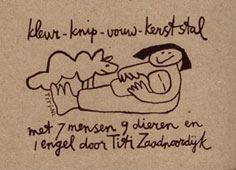 kleur-knip-vouw-kerststal
met 7 mensen 9 dieren en
1 engel door Titi Zaadnoordijk